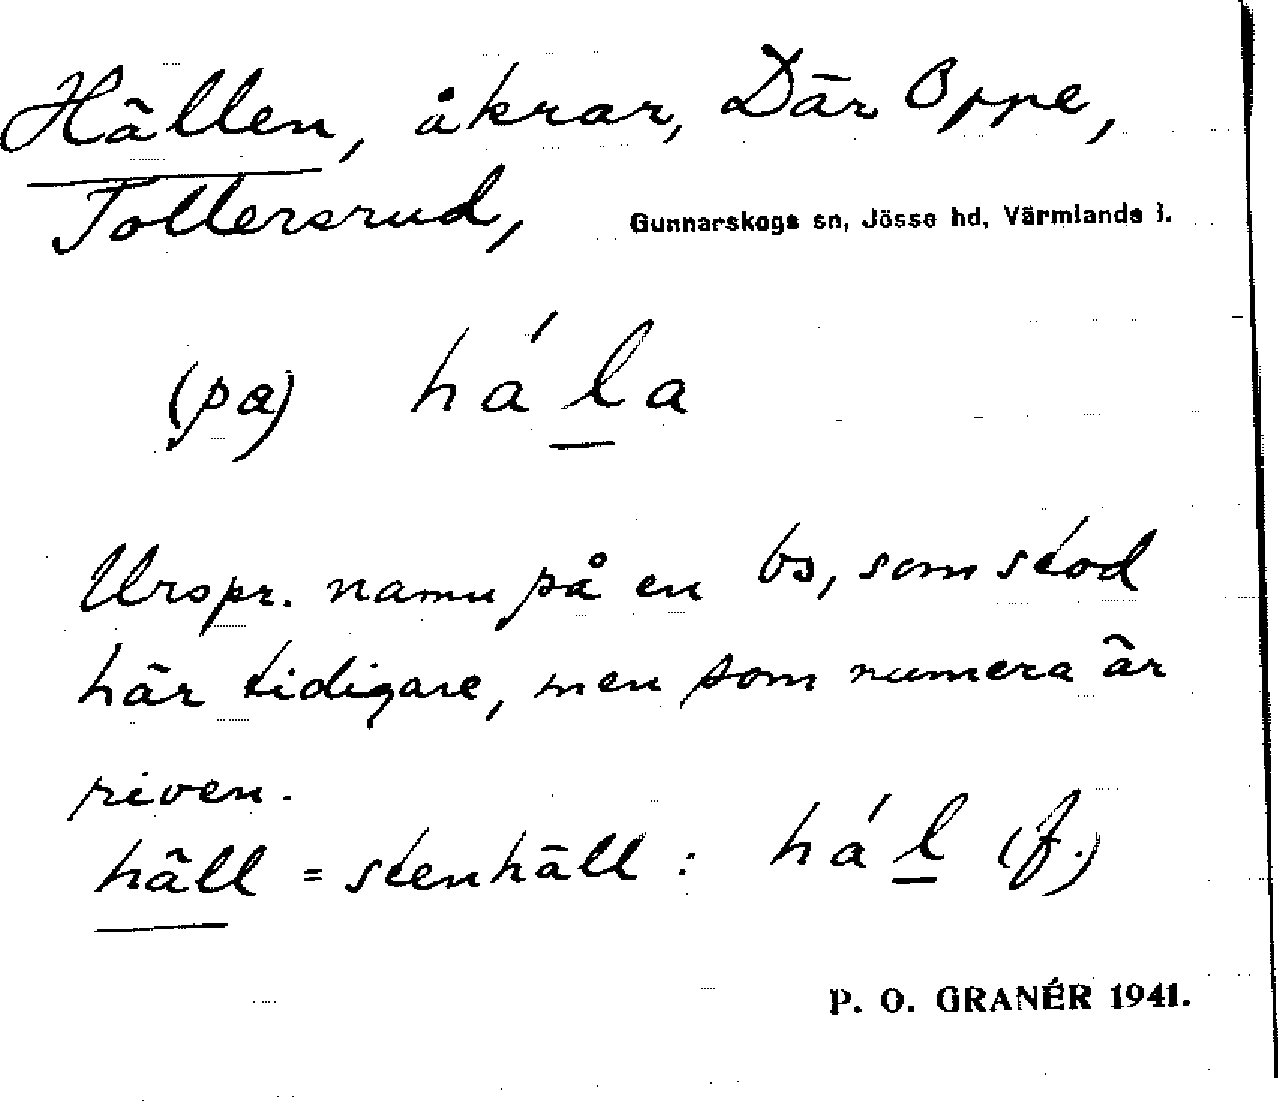 Hällen, åkrar, Där Oppe,
Tollersrud, Gunnarskogs sn, Jösse hd, Värmlands l.
(pa) há l̲a
Urspr. namn på en bs, som stod
här tidigare, men som numera är
riven.
häll = stenhäll : há l̲ (f.)
P. O. GRANÉR 1941.